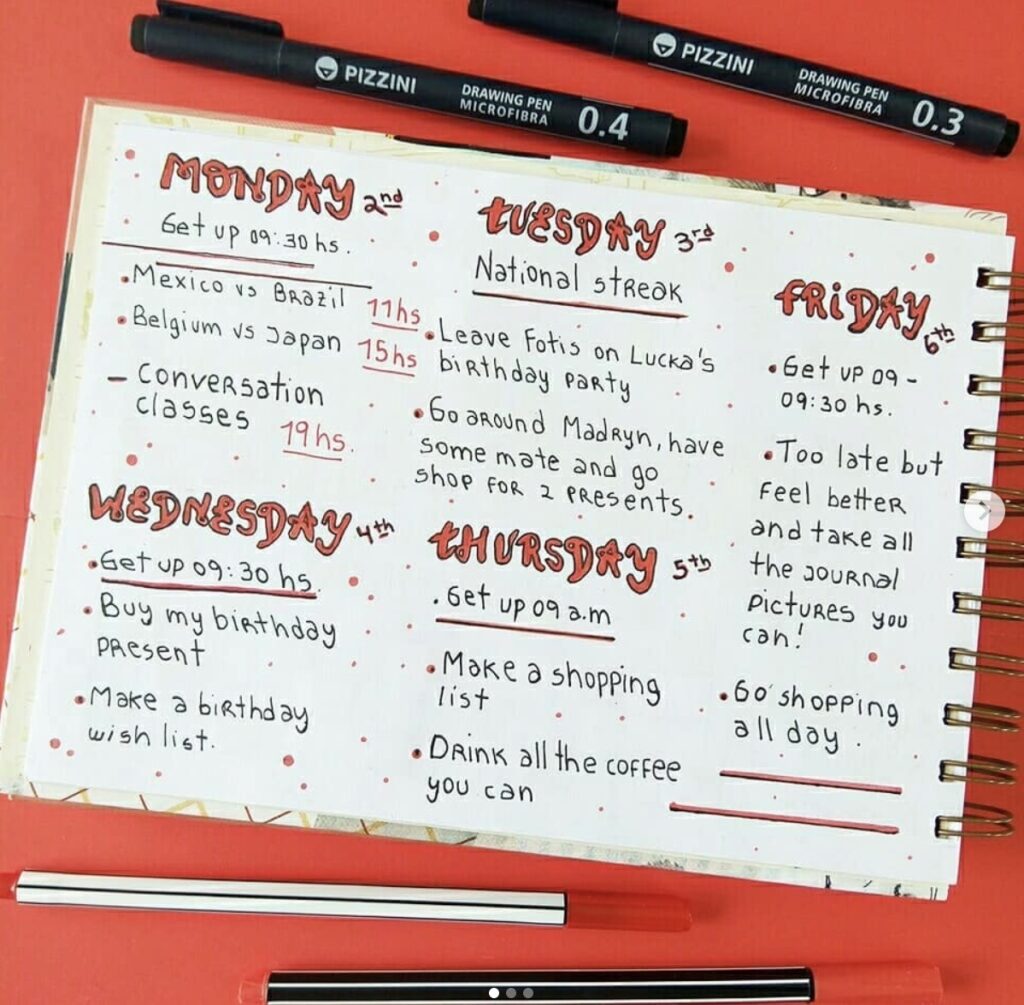 PIZZINI
DRAWING PEN
MICROFIBRA
0.4
PIZZINI
DRAWING PEN
MICROFIBRA
0.3
MONDAY 2nd
Get up 09:30 hs.
• Mexico vs Brazil 11hs
• Belgium vs Japan 15hs
- Conversation
classes 19hs.
TUESDAY 3rd
National streak
• Leave Fotis on Lucka's
birthday party
• Go around Madryn, have
some mate and go
shop for 2 presents.
WEDNESDAY 4th
• Get up 09:30 hs.
• Buy my birthday
present
• Make a birthday
wish list.
THURSDAY 5th
. Get up 09 a.m
• Make a shopping
list
• Drink all the coffee
you can
FRiDAY 6th
• Get up 09 -
09:30 hs.
• Too late but
feel better
and take all
the journal
pictures you
can!
• Go shopping
all day.